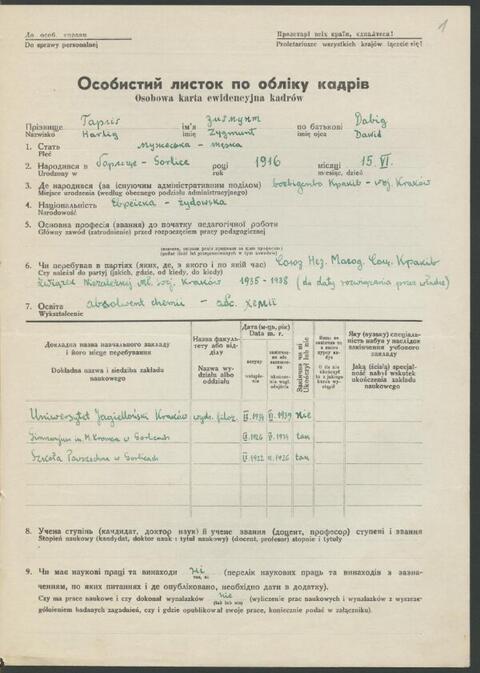 До особ. справи
Do sprawy personalnej
Пролетарі всіх країн, єднайтеся!
Proletariusze wszystkich krajów łączcie się!
1
Особистий листок по обліку кадрів
Osobowa karta ewidencyjna kadrów
Прізвище Гарліг ім'я Зигмунт по батькові Давід
Nazwisko Harlig imię Zygmunt imię ojca Dawid
1. Стать мужеська - męska
Płeć
2. Народився в Горлице - Gorlice році 1916 місяці 15.VI.
Urodzony w rok miesiąc, dzień
3. Де народився (за існуючим адміністративним поділом) Краків - woj. Kraków
Miejsce urodzenia (według obecnego podziału administracyjnego)
4. Національність Еврейска - żydowska
Narodowość
5. Основна професія (звання) до початку педагогічної роботи
Główny zawód (zatrudnienie) przed rozpoczęciem pracy pedagogicznej
6. Чи перебував в партіях (яких, де, з якого і по який час) Союз Нез. Молод. Соц. Краків
Czy należał do partyj (jakich, gdzie, od kiedy, do kiedy)
Związek Niezależnej Mł. soj. Kraków 1935-1938 (do daty rozwiązania przez władze)
7. Освіта absolwent chemii - абс. хемії
Wykształcenie
Докладна назва навчального закладу і його місце перебування
Dokładna nazwa i siedziba zakładu naukowego
Назва факультету або відділу
Nazwa wydziału albo oddziału
Дата (м-ць, рік)
Data m. r.
вступу
wstąpienia
Закінчив чи ні
Ukończył lub nie
Яку (вузьку) спеціальність набув у наслідок закінчення учбового закладу
Jaką (ścisłą) specjalność nabył wskutek ukończenia zakładu
Uniwersytet Jagielloński Kraków wydz. filoz. IX.1934 VI.1939 nie
Gimnazjum im. M. Kromera w Gorlicach IX.1926 V.1934 tak
Szkoła Powszechna w Gorlicach IX.1922 VI.1926 tak
8. Учена ступінь (кандидат, доктор наук) й учене звання (доцент, професор) ступені і звання
Stopień naukowy (kandydat, doktor nauk i tytuł naukowy) (docent, profesor) stopnie i tytuły
9. Чи має наукові праці та винаходи ні (перелік наукових праць та винаходів з зазначенням,
так, ні
по яких питаннях і де опубліковано, необхідно дати в додатку).
Czy ma prace naukowe i czy dokonał wynalazków nie (wyliczenie prac naukowych i wynalazków z wyszczególnieniem
(tak lub nie)
badanych zagadnień, czy i gdzie opublikował swoje prace, koniecznie podać w załączniku).